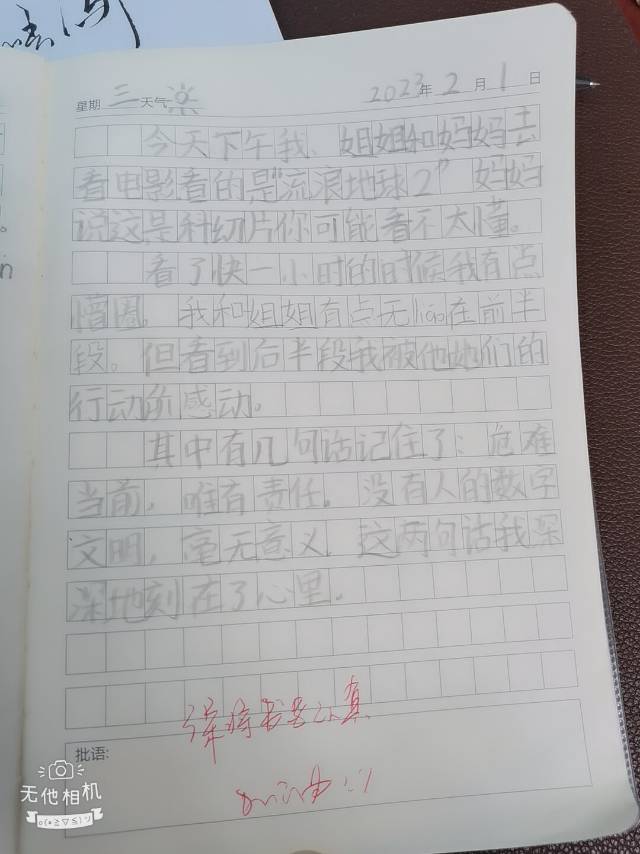 星期 三 天气 2023年2月1日
今天下午我、姐姐和妈妈去
看电影看的是"流浪地球2"妈妈
说这是科幻片你可能看不太懂。
看了快一小时的时候我有点
懵圈。我和姐姐有点无liáo在前半
段。但看到后半段我被他她们的
行动所感动。
其中有几句话记住了：危难
当前，唯有责任。没有人的数字
文明，毫无意义。这两句话我深
深地刻在了心里。
批语:
无他相机